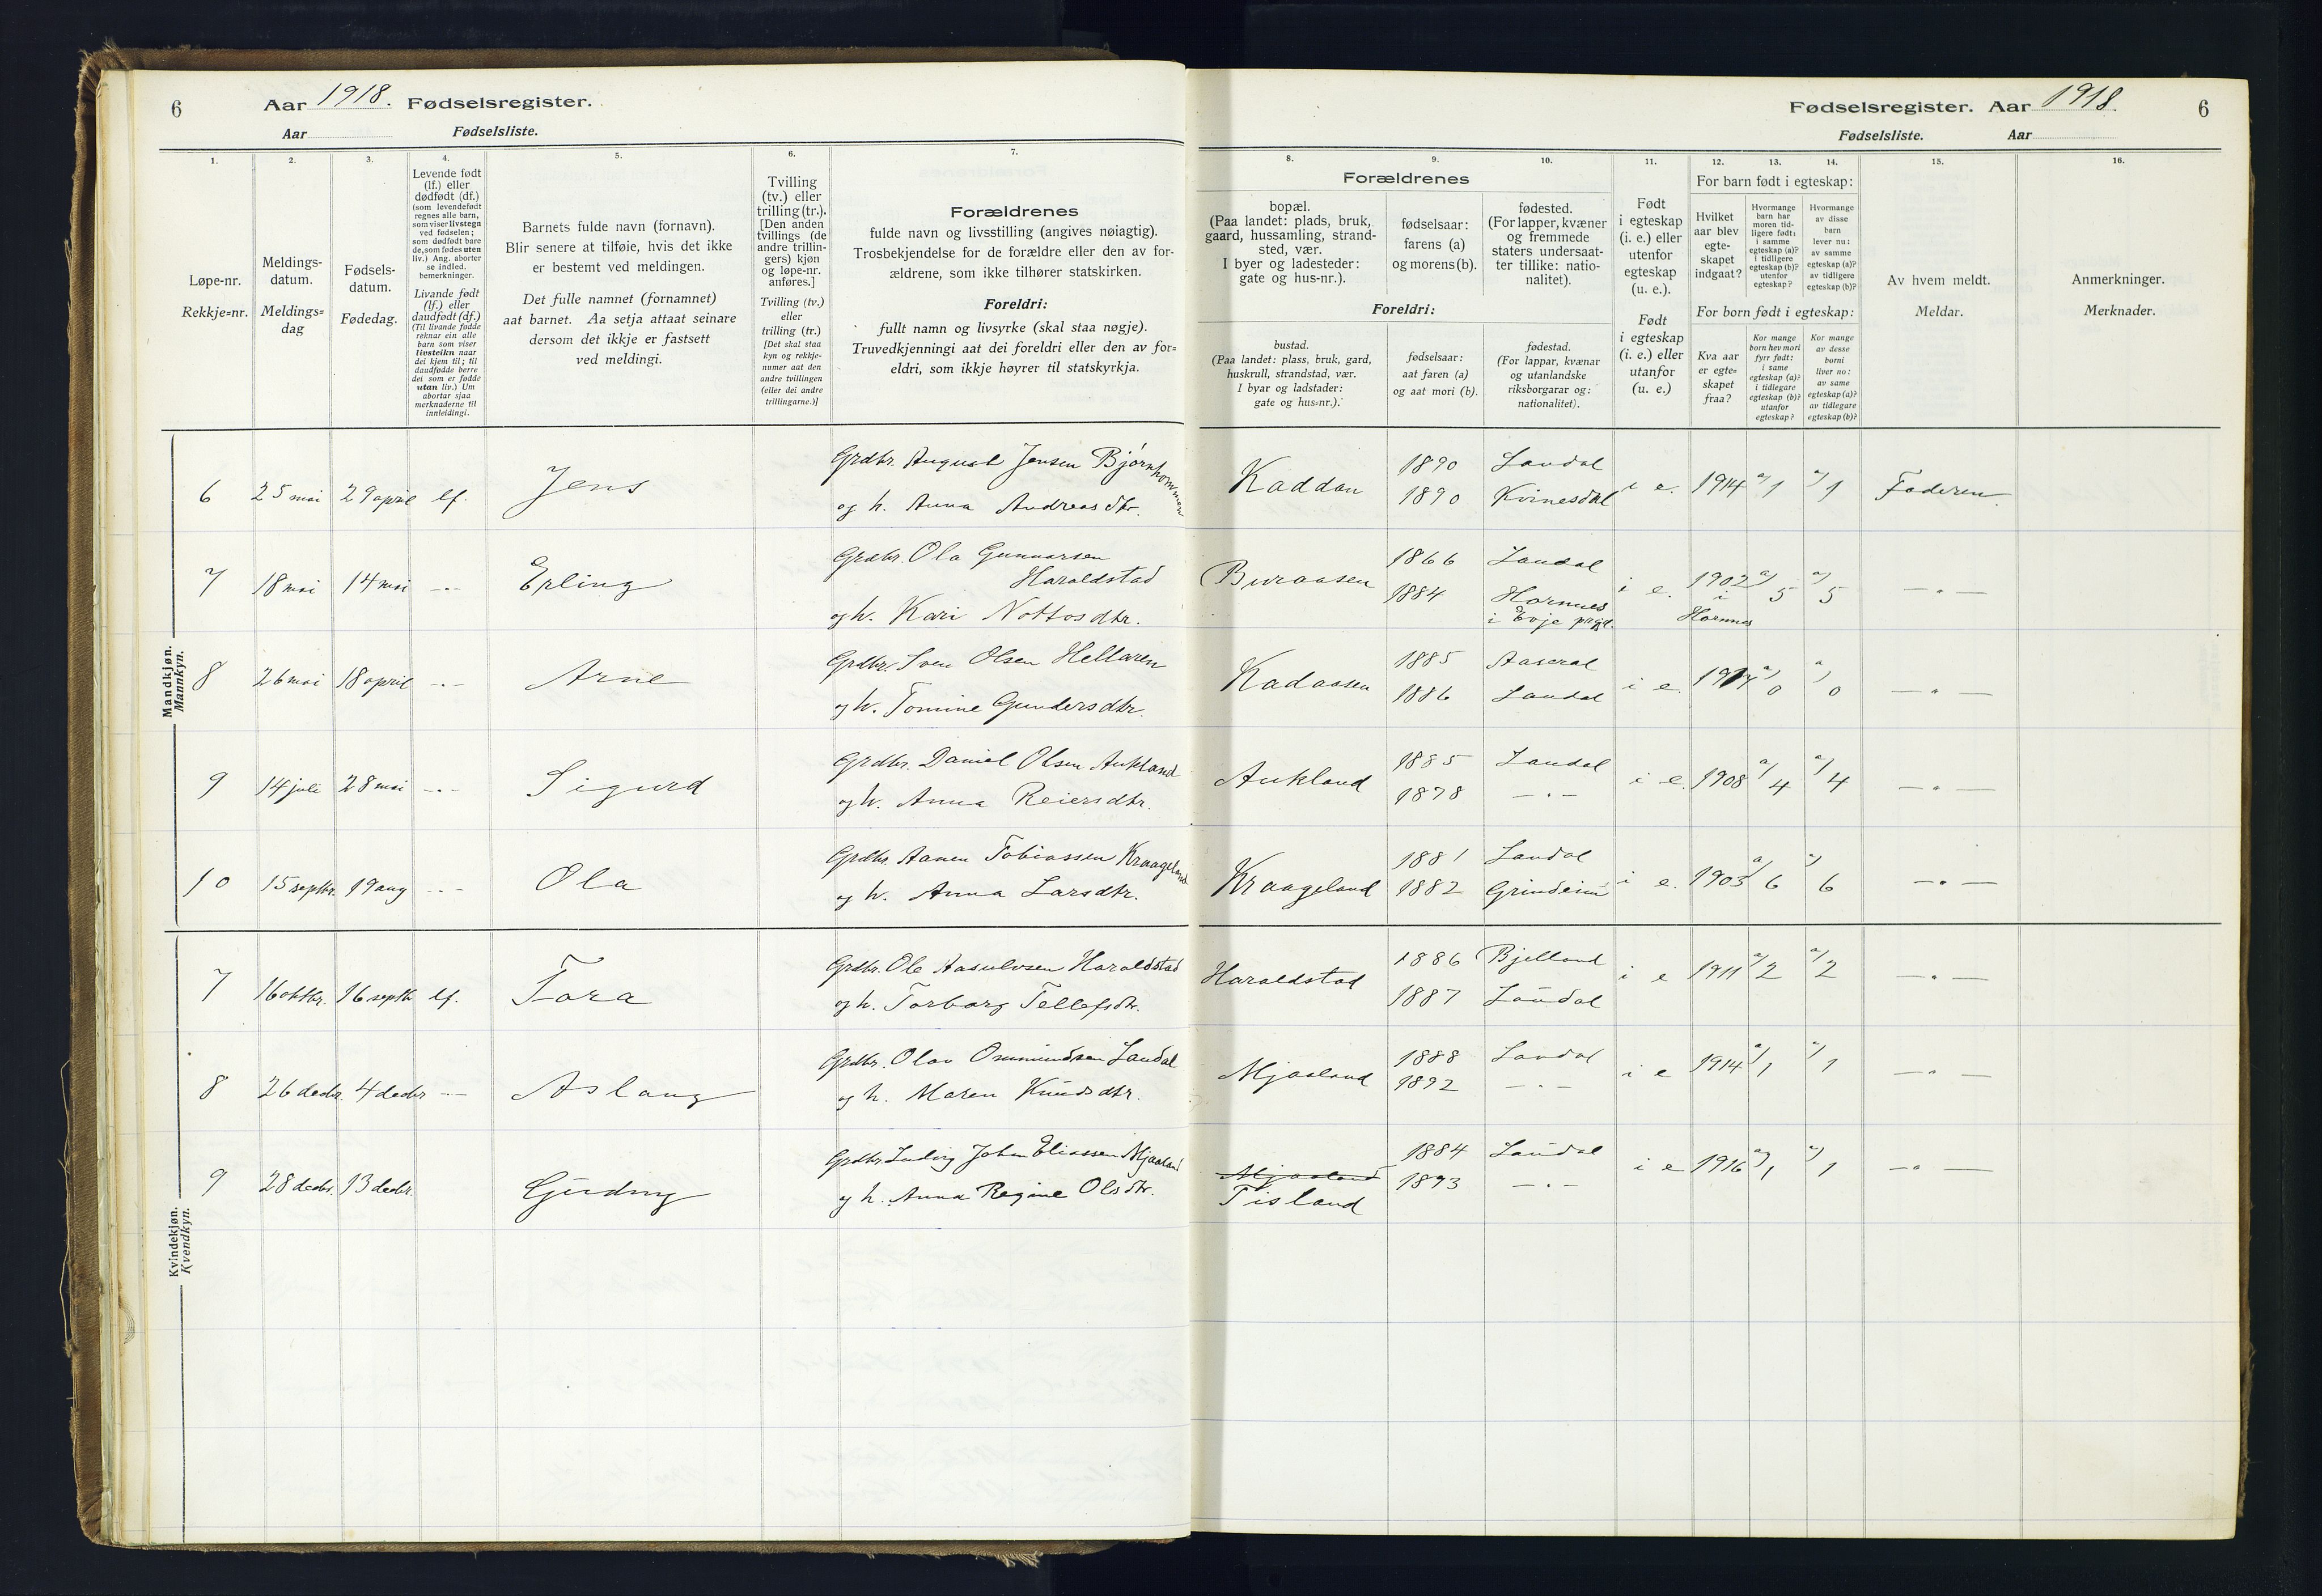 6
Aar 1918. Fødselsregister.
Aar
Fødselsliste.
1.
Løpe-nr.
Rekkje=nr.
2.
Meldings-
datum.
Meldings=
dag
3.
Fødsels-
datum.
Fødedag.
4.
Levende født
(lf.) eller
dødfødt (df.)
(som levendefødt
regnes alle barn,
som viser livstegn
ved fødselen;
som dødfødt bare
de, som fødes uten
liv.) Ang. aborter
se indled.
bemerkninger.
Livande født
(lf.) eller
daudfødt (df.)
(Til livande fødde
reknar ein alle
barn som viser
livsteikn naar
dei kjem til; til
daudfødde berre
dei som er fødde
utan liv.) Um
abortar sjaa
merknaderne til
innleidingi.
5.
Barnets fulde navn (fornavn).
Blir senere at tilføie, hvis det ikke
er bestemt ved meldingen.
Det fulle namnet (fornamnet)
aat barnet. Aa setja attaat seinare
dersom det ikkje er fastsett
ved meldingi.
6.
Tvilling
(tv.) eller
trilling (tr.).
[Den anden
tvillings (de
andre trillin-
gers) kjøn
og løpe-nr.
anføres.]
Tvilling (tv.)
eller
trilling (tr.)
[Det skal staa
kyn og rekkje-
numer aat den
andre tvillingen
(eller dei andre
trillingarne.)]
7.
Forældrenes
fulde navn og livsstilling (angives nøiagtig).
Trosbekjendelse for de forældre eller den av for-
ældrene, som ikke tilhører statskirken.
Foreldri:
fullt namn og livsyrke (skal staa nøgje).
Truvedkjenningi aat dei foreldri eller den av for=
eldri, som ikkje høyrer til statskyrkja.
Mandkjøn.
Mannkyn.
6 25 mai 29 april lf. Jens
Grdbr. August Jensen Bjørnhommen
og h. Anna Andreasdtr.
7 18 mai 14 mai -"- Erling
Grdbr. Ola Gunnarsen
Haraldstad
og h. Kari Nottosdtr.
8 26 mai 18 april -"- Arne
Grdbr. Sven Olsen Hellaren
og h. Tomine Gundersdtr.
9 14 juli 28 mai -"- Sigurd
Grdbr. Daniel Olsen Aukland
og h. Anna Reiersdtr.
10 15 septbr. 19 aug -"- Ola
Grdbr. Aanen Tobiassen Kraageland
og h. Anna Larsdtr.
Kvindekjøn.
Kvendkyn.
7 16 oktbr. 16 septb lf. Tora
Grdbr. Ole Aasulvsen Haraldstad
og h. Torborg Tellefsdtr.
8 26 decbr. 4 decbr -"- Aslaug
Grdbr. Olav Ommundsen Laudal
og h. Maren Knudsdtr.
9 28 decbr. 13 decbr. Gudny
Grdbr. Ludvig Johan Eliassen Mjaaland
og h. Anna Regine Olsdtr.
Fødselsregister. Aar 1918.
6
Fødselsliste.
Aar
8.
Forældrenes
bopæl.
(Paa landet: plads, bruk,
gaard, hussamling, strand-
sted, vær.
I byer og ladesteder:
gate og hus-nr.).
9.
fødselsaar:
farens (a)
og morens (b).
10.
fødested.
(For lapper, kvæner
og fremmede
staters undersaat-
ter tillike: natio-
nalitet).
Foreldri:
bustad.
(Paa landet: plass, bruk, gard,
huskrull, strandstad, vær.
I byar og ladstader:
gate og hus=nr.).
fødselsaar:
aat faren (a)
og aat mori (b).
fødestad.
(For lappar, kvænar
og utanlandske
riksborgarar og:
nationalitet).
11.
Født
i egteskap
(i. e.) eller
utenfor
egteskap
(u. e.).
Født
i egteskap
(i. e.) eller
utanfor
(u. e.)
12. 13. 14.
For barn født i egteskap:
Hvilket
aar blev
egte-
skapet
indgaat?
Hvormange
barn har
moren tid-
ligere født:
i samme
egteskap (a)?
i tidligere
egteskap (b)?
utenfor
egteskap?
Hvormange
av disse
barn
lever nu:
av samme
egteskap (a)?
av tidligere
egteskap (b)?
For born født i egteskap:
Kva aar
er egte=
skapet
fraa?
Kor mange
born hev mori
fyrr født:
i same
egteskap (a)?
i tidlegare
egteskap (b)?
utanfor
egteskap?
Kor mange
av desse
borni
liver no:
av same
egteskap (a)?
av tidlegare
egteskap (b)?
15.
Av hvem meldt.
Meldar.
16.
Anmerkninger.
Merknader.
1890 Laudal
Kaddan i e. 1914 a/1 a/1 Faderen
1890 Kvinesdal
1866 Laudal
Buraasen i e. 1902 a/5 a/5 -"-
1884 Hornnes i
i Evje prgd. Hornnes
1885 Aaseral
Kadaasen i e. 1917 a/0 a/0 -"-
1886 Laudal
1885 Laudal
Aukland i e. 1908 a/4 a/4 -"-
1878 -"-
1881 Laudal
Kraageland i e. 1903 a/6 a/6 -"-
1882 Grindeim
1886 Bjelland
Haraldstad i e 1911 a/2 a/2 -"-
1887 Laudal
1888 Laudal
Mjaaland i e 1914 a/1 a/1 -"-
1892 -"-
1884 Laudal
Mjaaland i e 1916 a/1 a/1 -"-
1893 -"-
Tisland